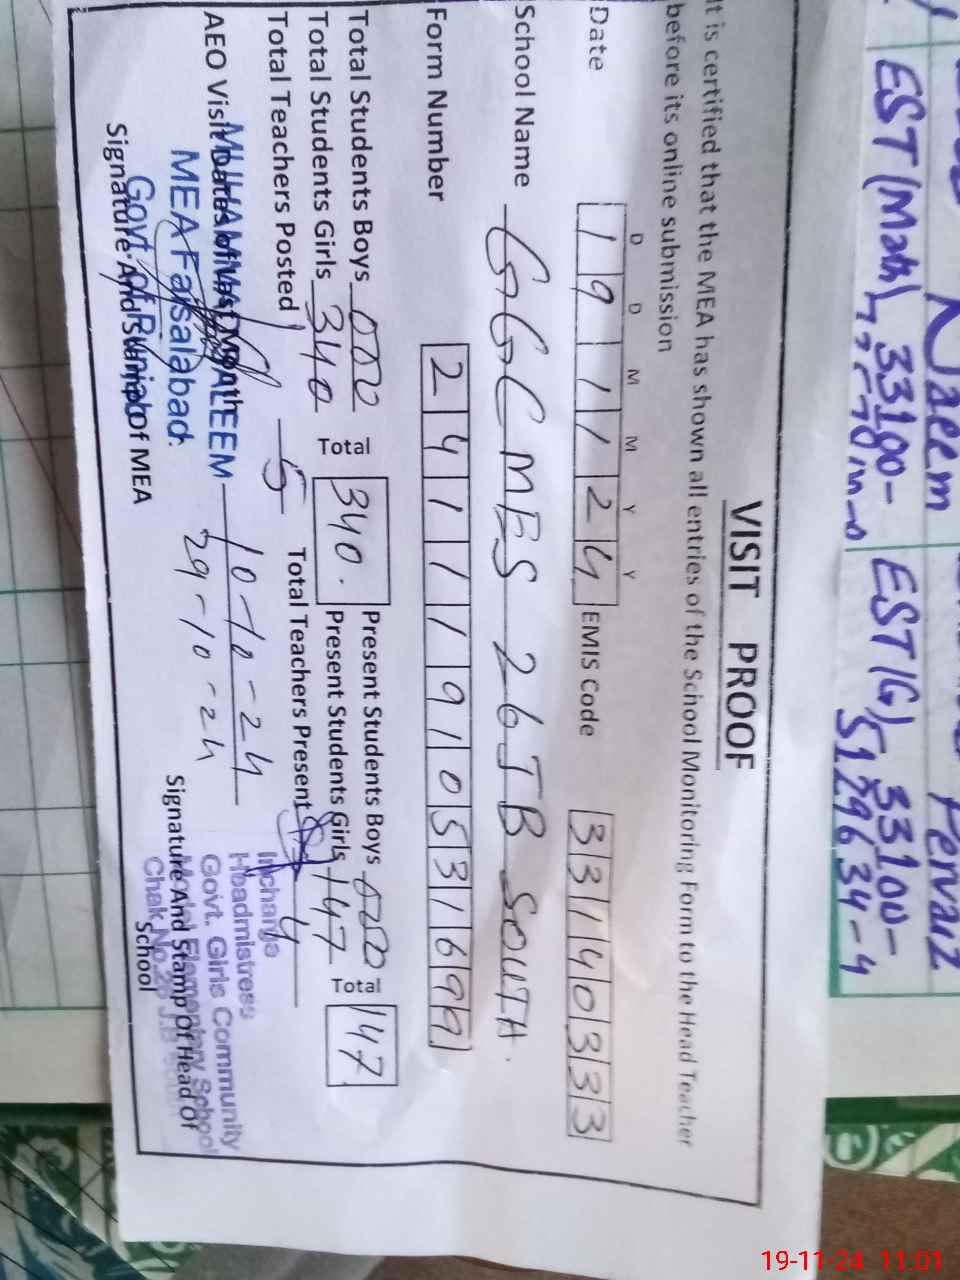 Naeem
Pervaiz
EST (Math)
33100-
EST (G)
33100-
5129634-4
VISIT PROOF
It is certified that the MEA has shown all entries of the School Monitoring Form to the Head Teacher
before its online submission
D D M M Y Y
Date 19 11 24 EMIS Code 33140333
School Name GGCMES 26 JB SOUTH.
Form Number 24111910531699
Total Students Boys 000 Total 340. Present Students Boys 000 Total 147
Total Students Girls 340 Present Students Girls 147
Total Teachers Posted 5 Total Teachers Present 4
AEO Visit Dates of Last Month 10-10-24
29-10-24
MUHAMMAD ALEEM
MEA Faisalabad.
Govt. of Punjab
Signature And Stamp of MEA
Incharge
Headmistress
Govt. Girls Community
Model Elementary School
Chak No.26 J.B
Signature And Stamp Of Head Of
School
19-11-24 11:01